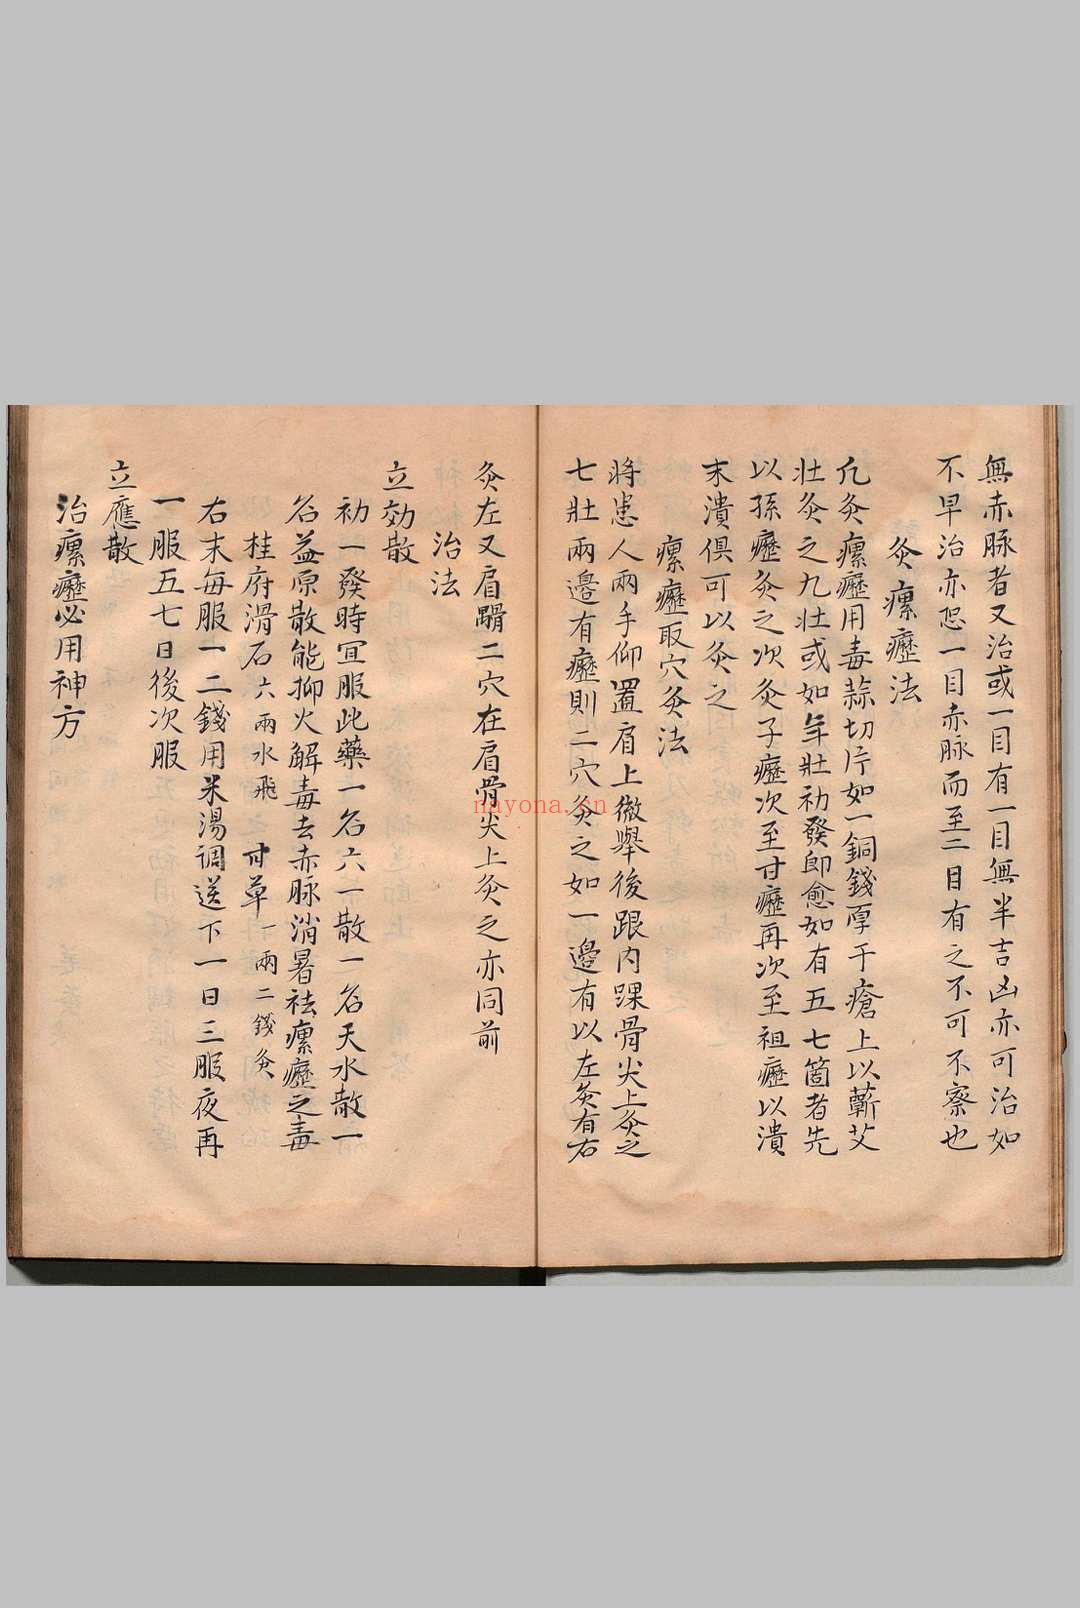 無赤脉者又治或一目有一目無半吉凶亦可治如
不早治亦恐一目赤脉而至二目有之不可不察也
灸瘰癧法
凢灸瘰癧用毒蒜切片如一銅錢厚于瘡上以蘄艾
壮灸之九壮或如年壮初發即愈如有五七箇者先
以孫癧灸之次灸子癧次至甘癧再次至祖癧以潰
末潰俱可以灸之
瘰癧取穴灸法
將患人兩手仰置肩上微舉後跟内踝骨尖上灸之
七壯兩邉有癧則二穴灸之如一邉有以左灸有右
灸左又肩髃二穴在肩骨尖上灸之亦同前
治法
立効散
初一發時宜服此藥一名六一散一名天水散一
名益原散能抑火解毒去赤脉消暑祛瘰癧之毒
桂府滑石六兩水飛 甘草一兩二錢灸
右末每服一二錢用米湯調送下一日三服夜再
一服五七日後次服
立應散
治瘰癧必用神方
nayona.cn